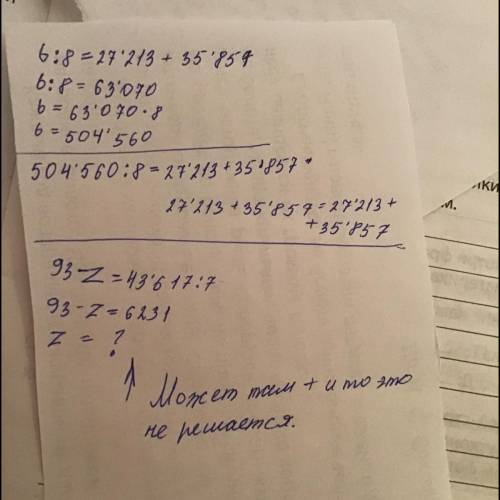 b:8=27'213+35'857
b:8=63'070
b=63'070·8
b=504'560
504'560:8=27'213+35'857
27'213+35'857=27'213+
+35'857
93-Z=43'617:7
93-Z=6231
Z = ?
Может там + и то это
не решается.
лки
м.